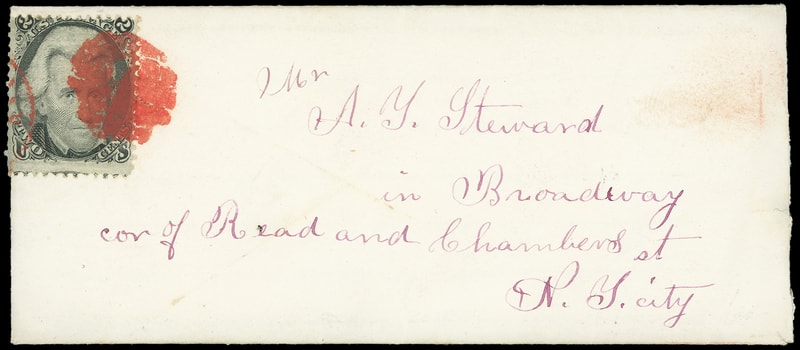 Mr
A. T. Steward
in Broadway
cor of Read and Chambers st
N. Y. city